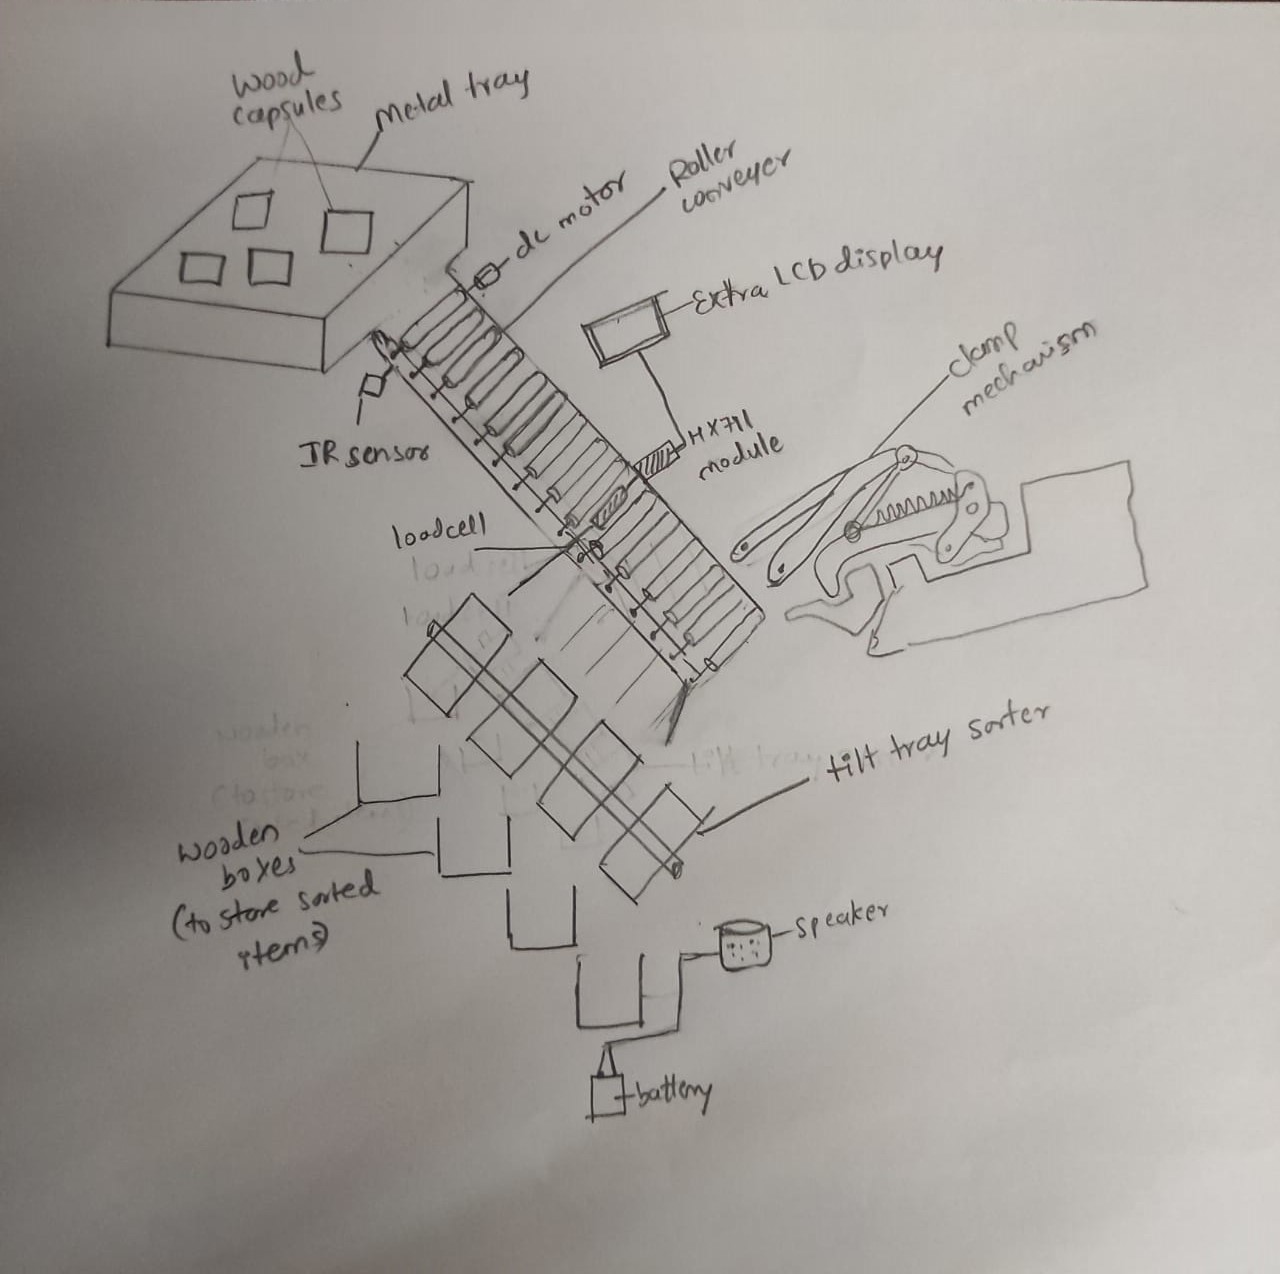 Wood
capsules
Metal tray
Roller
conveyer
dc motor
Extra LCD display
clamp
mechanism
IR sensor
HX711
module
loadcell
tilt tray sorter
wooden
boxes
(to store sorted
items)
speaker
battery